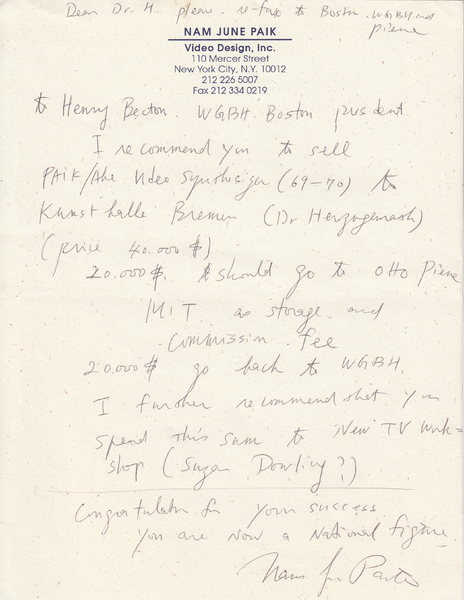 Dear Dr. H. please re-fax to Boston. WGBH and
Piene
NAM JUNE PAIK
Video Design, Inc.
110 Mercer Street
New York City, N.Y. 10012
212 226 5007
Fax 212 334 0219
to Henry Becton. WGBH. Boston president
I recommend you to sell
PAIK/Abe Video Synthesizer (69–70) to
Kunsthalle Bremen (Dr Herzogenrath)
(price 40.000 $)
20.000 $. should go to Otto Piene
MIT as storage and
Commission fee
20.000 $ go back to WGBH.
I further recommend that you
spend this sum to New TV Work=
shop (Suzan Dowling?)
Congratulation for your success
You are now a National figure
Nam June Paik